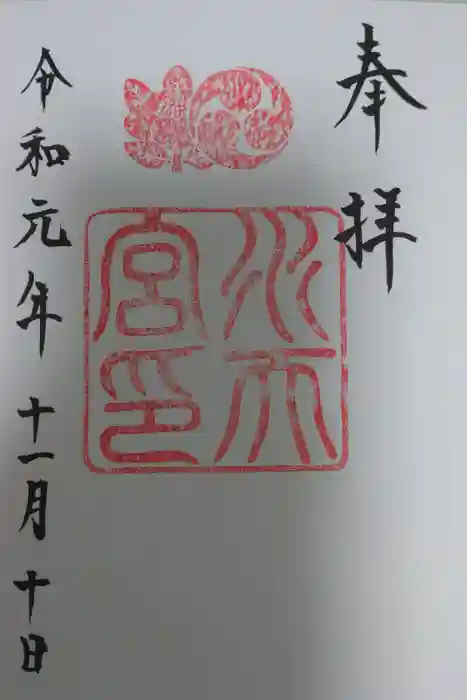 奉拝
水天
宮印
令和元年十一月十日